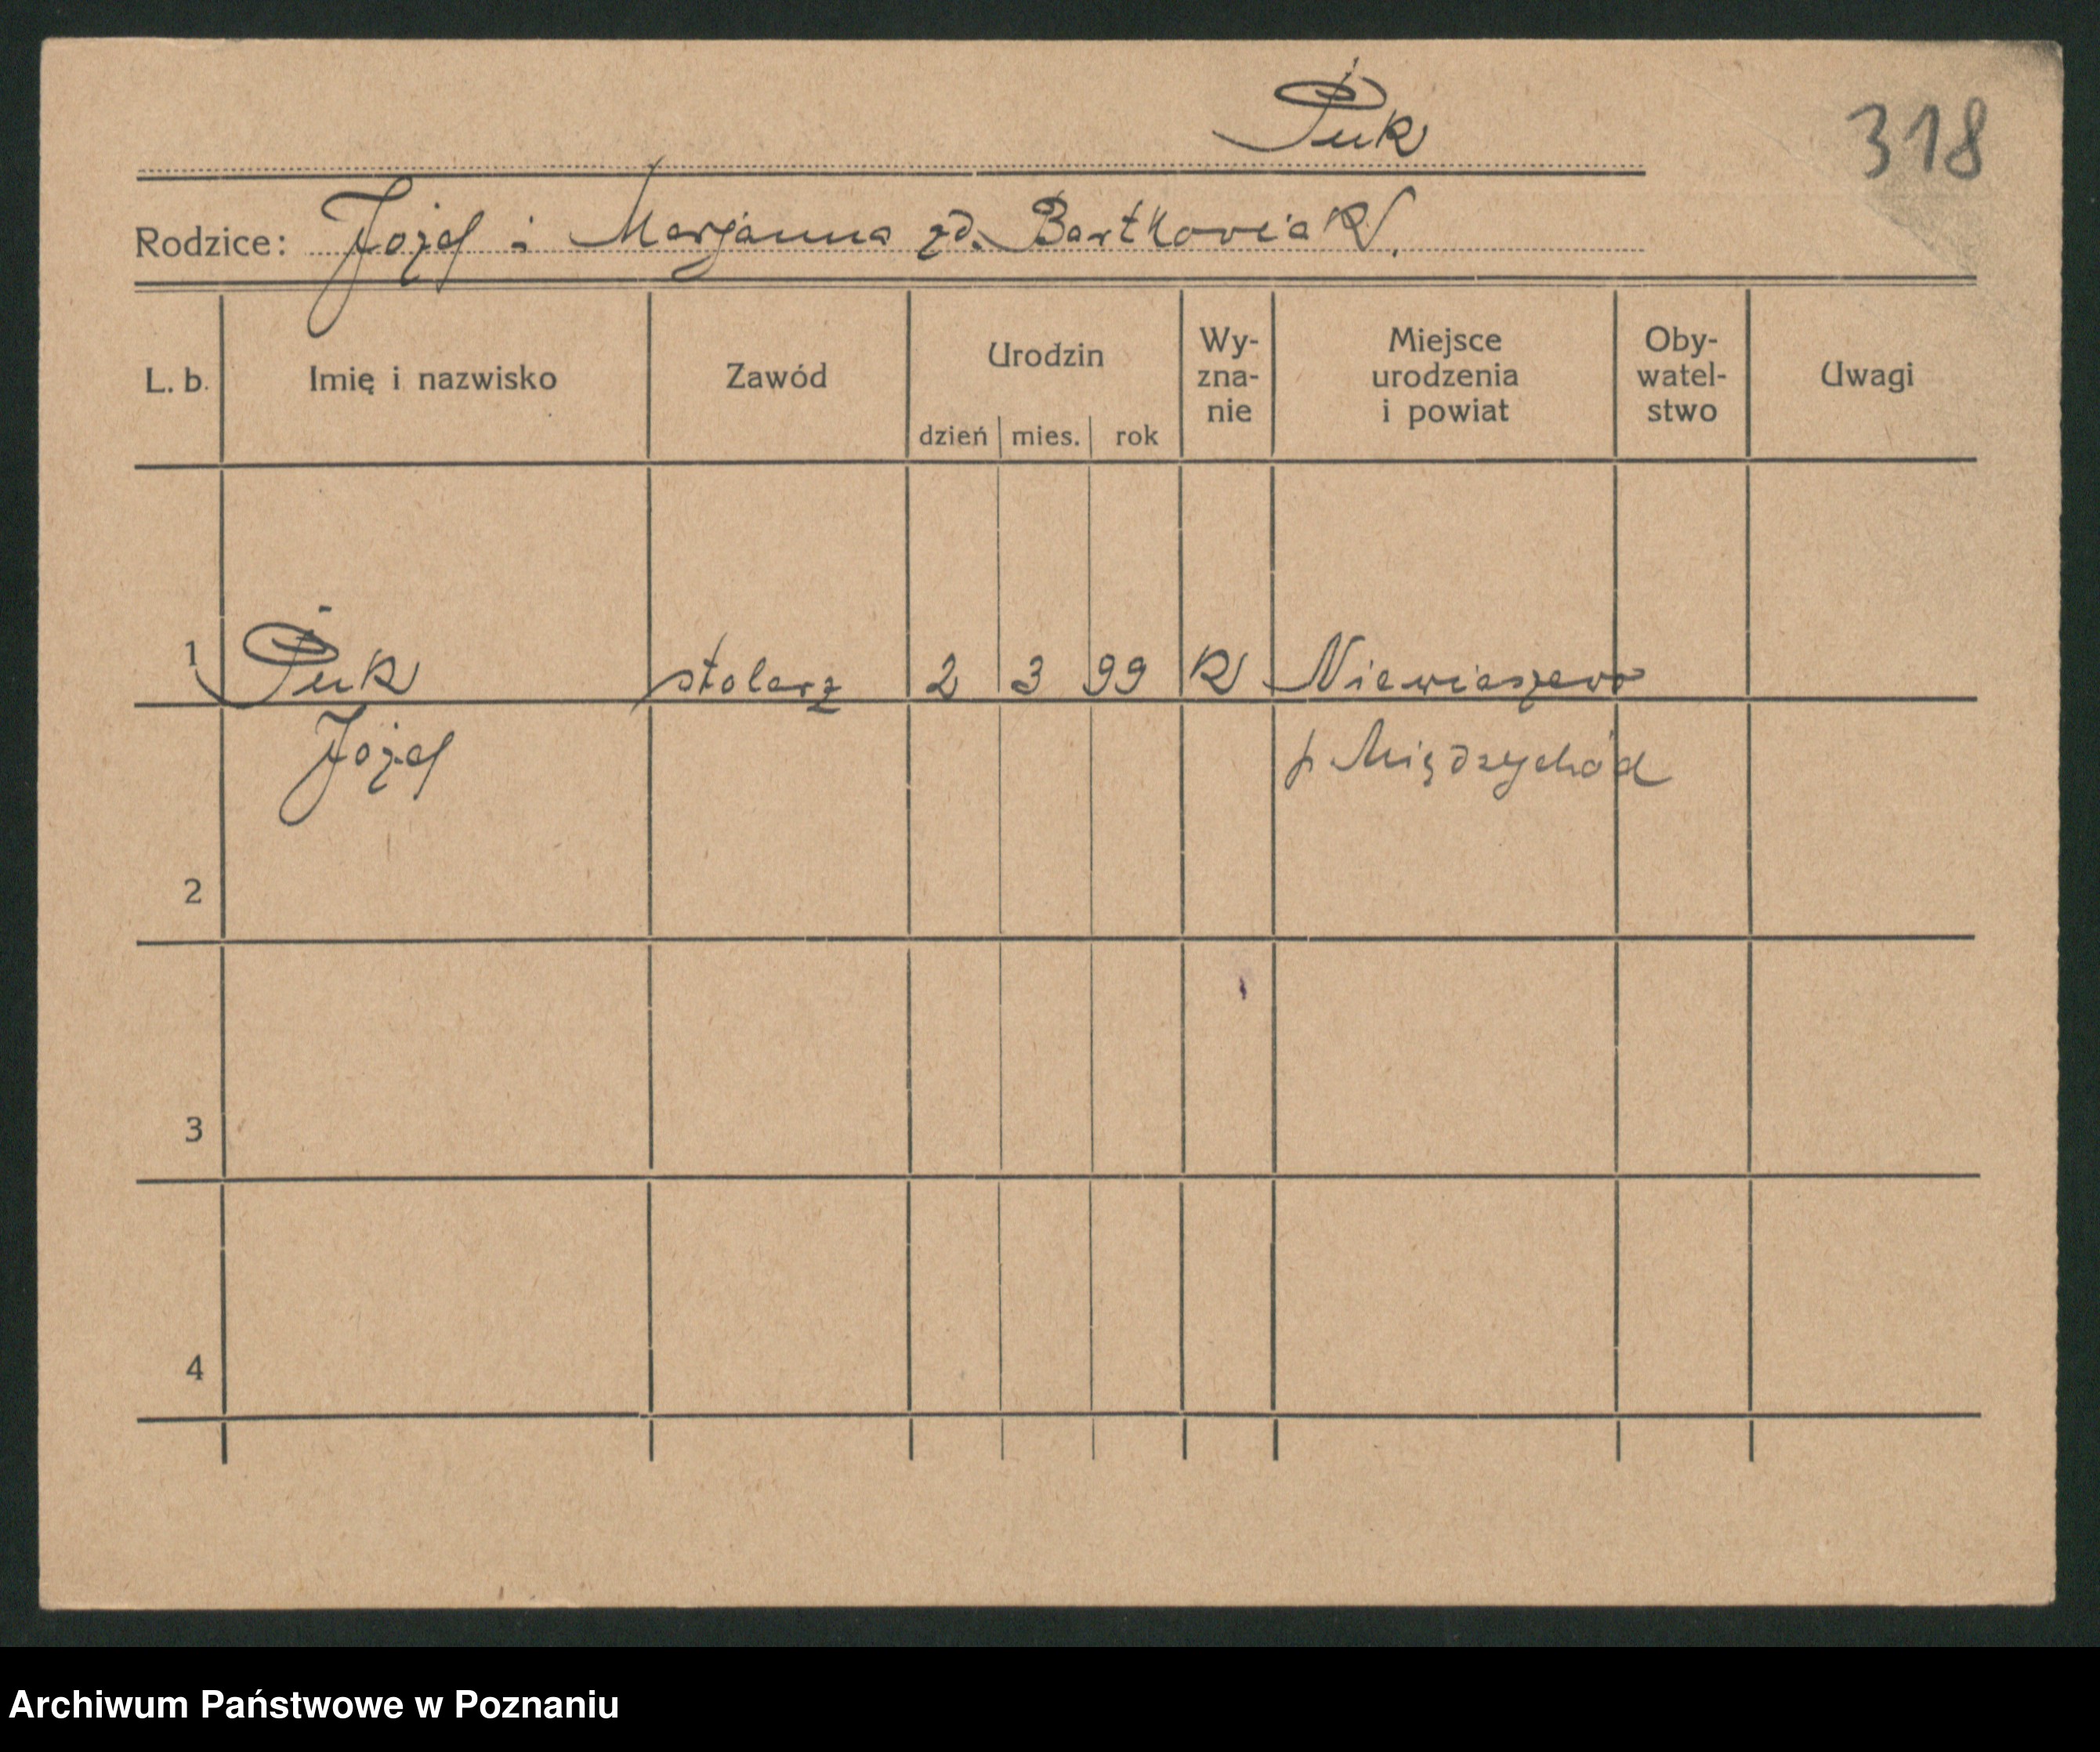 Puk
318
Rodzice: Józef i Marjanna zd. Bartkowiak.
L. b. Imię i nazwisko Zawód Urodzin dzień mies. rok Wy-zna-nie Miejsce urodzenia i powiat Oby-watel-stwo Uwagi
1 Puk stolarz 2 3 99 K Niewierzewo
Józef p Międzychód
2
3
4
Archiwum Państwowe w Poznaniu